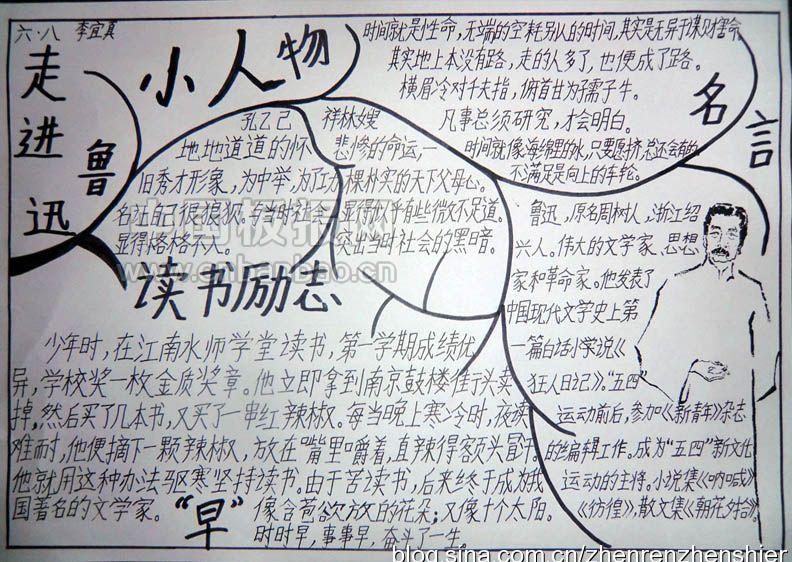 六·八 李宜真
走进鲁迅
小人物
孔乙己
地地道道的怀
旧秀才形象,为中举,为了功
名让自己很狼狈。与当时社会
显得格格不入。
祥林嫂
悲惨的命运,一
棵朴实的天下父母心。
显得似乎有些微不足道。
突出当时社会的黑暗。
名言
时间就是性命,无端的空耗别人的时间,其实是无异于谋财害命
其实地上本没有路,走的人多了,也便成了路。
横眉冷对千夫指,俯首甘为孺子牛。
凡事总须研究,才会明白。
时间就像海绵里的水,只要愿挤,总还会有的
不满足是向上的车轮。
鲁迅,原名周树人,浙江绍
兴人。伟大的文学家、思想
家和革命家。他发表了
中国现代文学史上第
一篇白话小说《
狂人日记》。“五四”
运动前后,参加《新青年》杂志
的编辑工作。成为“五四”新文化
运动的主将。小说集《呐喊》
《彷徨》,散文集《朝花夕拾》。
读书励志
少年时,在江南水师学堂读书,第一学期成绩优
异,学校奖一枚金质奖章。他立即拿到南京鼓楼街头卖
掉,然后买了几本书,又买了一串红辣椒。每当晚上寒冷时,夜读
难耐,他便摘下一颗辣椒,放在嘴里嚼着,直辣得额头冒汗。
他就用这种办法驱寒坚持读书。由于苦读书,后来终于成为我
国著名的文学家。
“早”
像含苞欲放的花朵;又像十个太阳。
时时早,事事早,奋斗了一生。
www.cnbanbao.cn
blog.sina.com.cn/zhenrenzhenshier